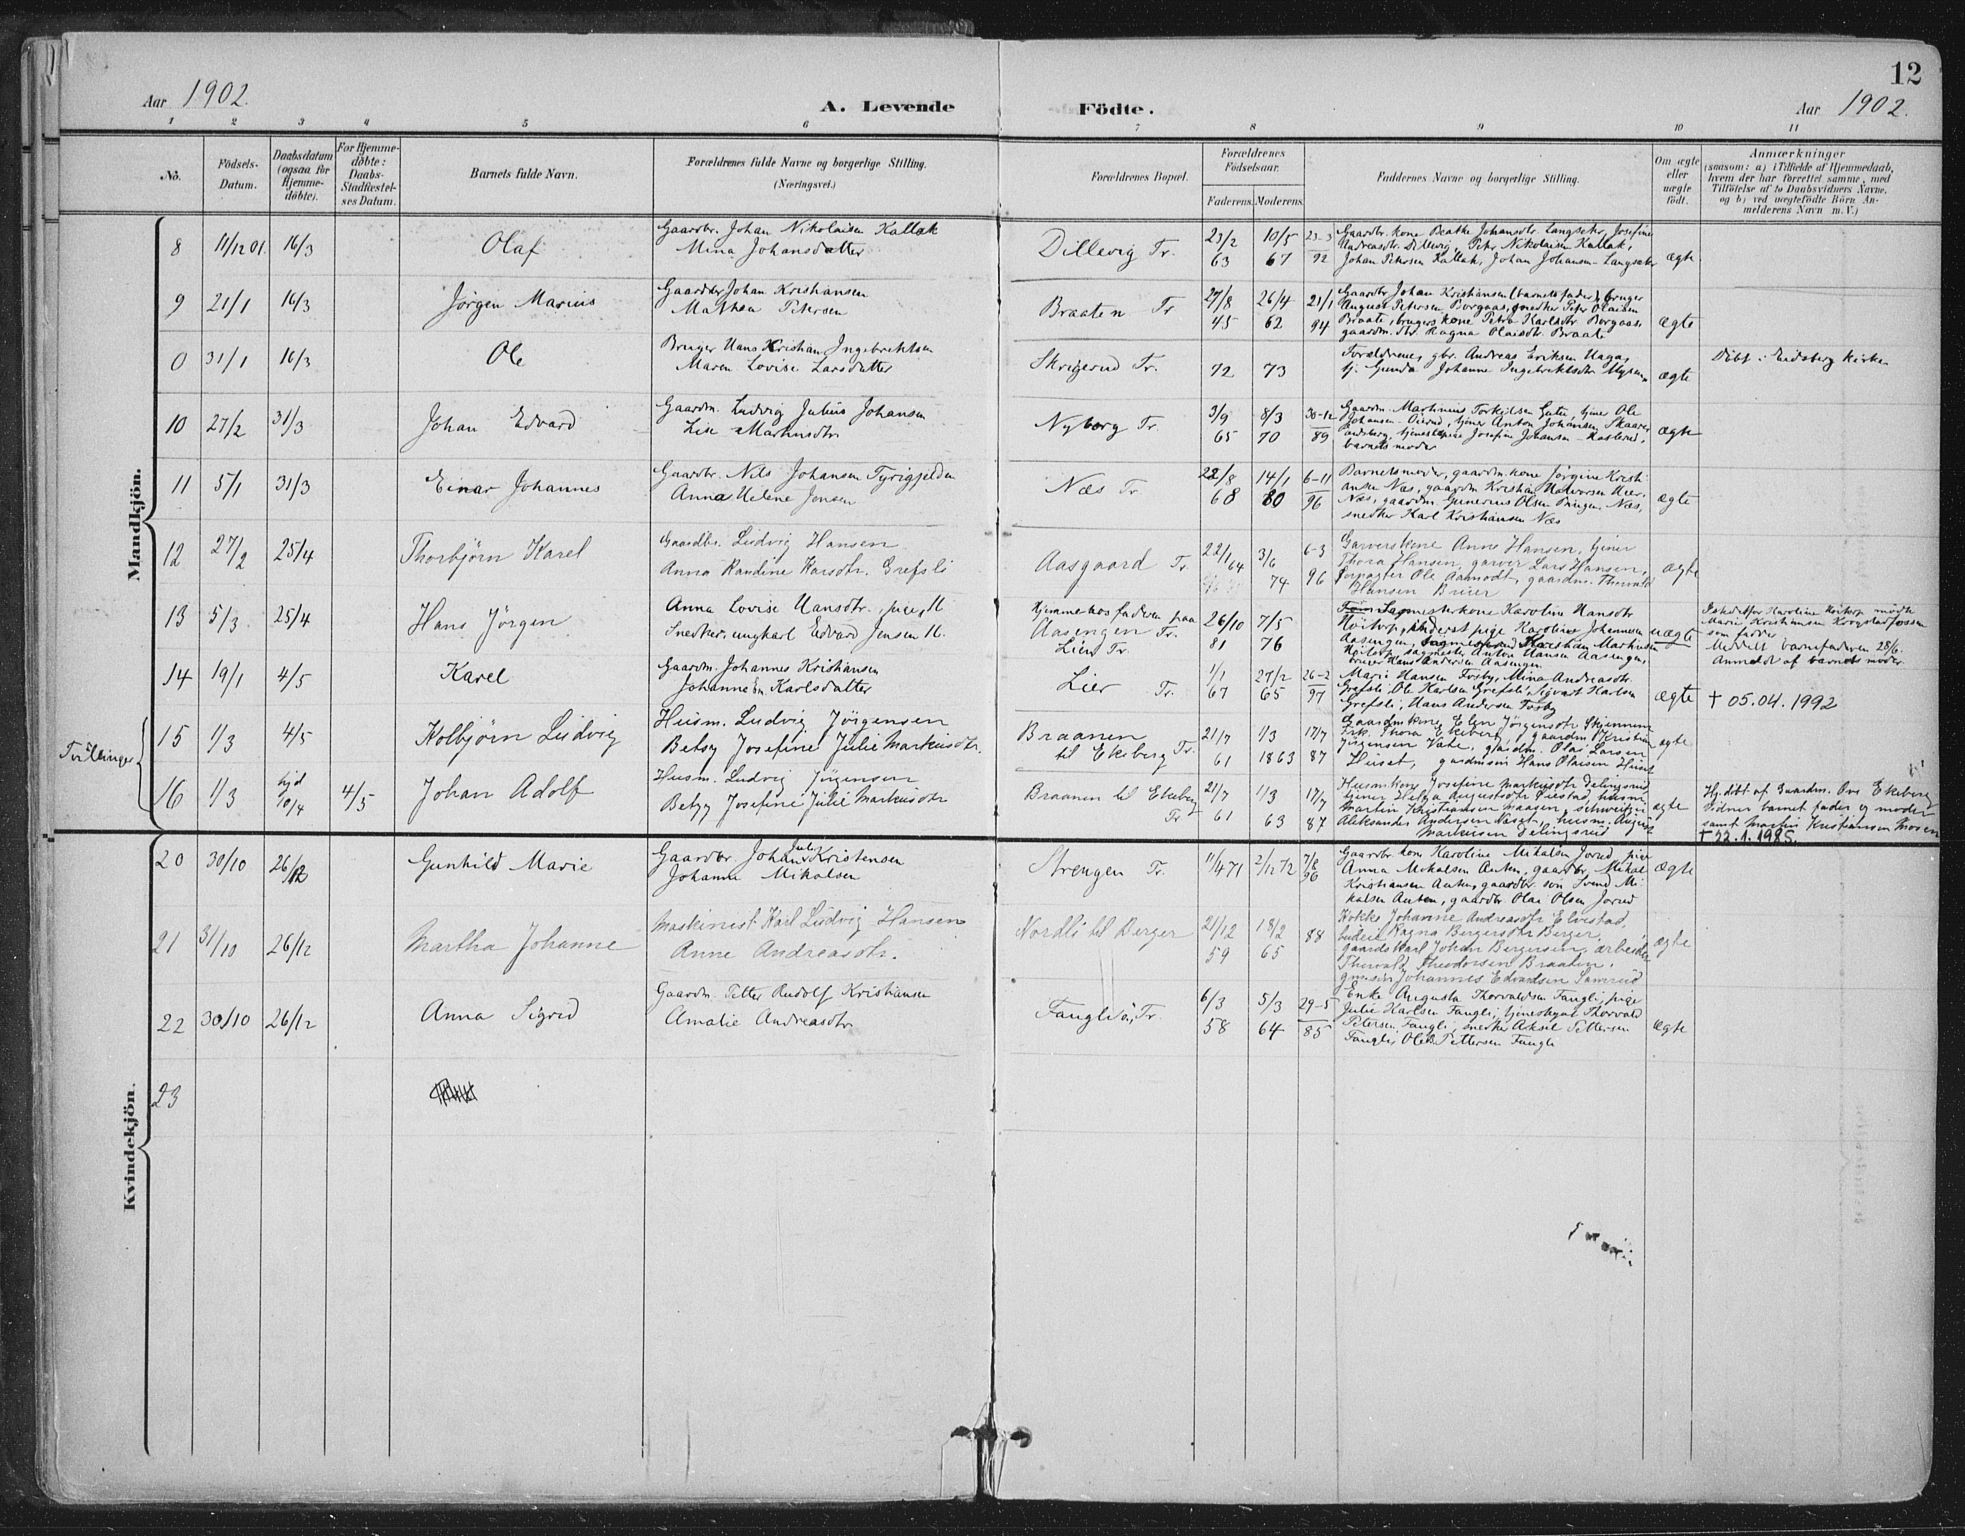 12
Aar 1902. A. Levende Födte. Aar 1902.
1 2 3 4 5 6 7 8 9 10 11
No.
Födsels-Datum.
Daabsdatum (ogsaa for Hjemme-döbte).
For Hjemme-döbte: Daabs-Stadfæstel-ses Datum.
Barnets fulde Navn.
Forældrenes fulde Navne og borgerlige Stilling.
(Næringsvei.)
Forældrenes Bopæl.
Forældrenes Födselsaar.
Faderens. Moderens.
Faddernes Navne og borgerlige Stilling.
Om ægte eller uægte födt.
Anmærkninger
(saasom: a) i Tilfælde af Hjemmedaab,
hvem der har forrettet samme, med
Tilföielse af to Daabsvidners Navne,
og b) ved uægtefödte Börn An-
melderens Navn m. V.)
Mandkjön.
8 11/12 01. 16/3 Olaf
Gaardbr. Johan Nikolaisen Kallak
Mina Johansdatter
Dillevig Tr. 23/2 63 10/5 67 23-3 92
Gaardbr. kone Beathe Johansdtr. Langsæter, Josefine
Andreasdtr. Dillevig, Petr Nikolaisen Kallak,
Johan Petersen Kallak, Johan Johansen Langsæter
ægte
9 21/1 16/3 Jörgen Marius
Gaardbr Johan Kristiansen
Mathea Petersen
Braaten Tr 27/8 45 26/4 62 21/1 94
Gaardbr Johan Kristiansen (barnets fader), bruger
August Petersen Borgaas, snedker Peter Olaisen
Braate, brugers kone Petra Karlsdtr Borgaas,
gaardm. dtr. Ragna Olaisdtr Braate
ægte
0 31/1 16/3 Ole
Bruger Hans Kristian Ingebrektsen
Maren Lovise Larsdatter
Skrigerud Tr. 72 73
Forældrene, gbr. Andreas Eriksen Haga,
tj. Gunda Johanne Ingebrektsdtr Myren
ægte
Döbt i Eidsberg kirke
10 27/2 31/3 Johan Edvard
Gaardm. Ludvig Julius Johansen
Lise Markusdtr
Nyborg Tr. 3/9 65 8/3 70 30-12 89
Gaardm. Martinius Torkilsen Gutu, tjener Ole
Johansen Oierud, tjener Anton Johansen Skaaren
andsberg, tjenestepige Josefine Johansen Kaslerud,
barnets moder
ægte
11 5/1 31/3 Einar Johannes
Gaardbr. Nils Johansen Tyrigjelden
Anna Helene Jensen
Næs Tr 22/8 68 14/1 80 6-11 96
Barnets moder, gaardm. kone Jörgine Kristi-
anse Næs, gaardm. Kristian Halvorsen Uer-
Næs, gaardm. Gunerius Olsen Næs,
snedker Karl Kristiansen Næs
ægte
12 27/2 25/4 Thorbjörn Karel
Gaardbr. Ludvig Hansen
Anna Randine Larsdtr. Grefsli
Aasgaard Tr. 22/1 64 3/6 74 6-3 96
Garverskone Anne Hansen, tjener
Thora Hansen, garver Lars Hansen,
forpagter Ole Aamodt, gaardm. Thorvald
Hansen Buer
ægte
13 5/3 25/4 Hans Jörgen
Anna Lovise Hansdtr, pige, 11
Snedker, ungkarl Edvard Jensen 16.
Hjemme hos faderen paa
Aasengen Tr.
Lien Tr.
26/10 81 7/5 76
Sagmesterkone Karoline Hansdtr
Hoitorp, inderst pige Karoline Johannesen
Aasengen, Kristian Markusen
Hoitorp, sagmester Anton Hansen Aasengen,
bruger Hans Andersen Aasengen
uægte
Istedetfor Karoline Hoitorp mödte
Marie Kristiansen Krogstadfossen
som fadder
Meddelt barnefaderen 28/6.
Anmeldt af barnets moder.
14 19/1 4/5 Karel
Gaardm. Johannes Kristiansen
Johanne Em. Karlsdatter
Lier Tr. 1/1 67 27/2 65 26-2 97
Marie Hansen Fosby, Mina Andreasdtr.
Grefsli, Ole Karlsen Grefsli, Sigvart Karlsen
Grefsli, Hans Andersen Fosby
ægte
† 05.04.1992
Tvillinger
15 1/3 4/5 Kolbjörn Ludvig
Husm. Ludvig Jörgensen
Betsy Josefine Julie Markusdtr.
Braanen til Ekeberg Tr. 21/7 61 1/3 1863 17/7 87
Gaardmskone Elen Jörgensdtr Skjenning
Frk. Thora Ekeberg, gaardm Kristian
Jörgensen Vate, gaardm. Olai Larsen
Huset, gaardmsön Hans Olaisen Huset
ægte
16 1/3 hjd 10/4 4/5 Johan Adolf
Husm. Ludvig Jörgensen
Betzy Josefine Julie Markusdtr
Braanen til Ekeberg Tr 21/7 61 1/3 63 17/7 87
Husm kone Josefine Markusdtr Delingsrud
tjener Helga Augustsdtr Öiestad, husm.
Martin Kristiansen Maasen, schweitzer
Aleksander Andersen Næset, husm. August
Markusen Delingsrud
ægte
Hj. döbt af Gaardm. Ekeberg
Vidner barnets fader og moder
samt Martin Kristiansen Mosen
† 22.1.1985.
Kvindekjön.
20 30/10 26/12 Gunhild Marie
Gaardbr Johan Juli Kristensen
Johanne Mikalsen
Strengen Tr. 11/4 71 2/12 72 7/8 96
Gaardbr kone Karoline Mikalsen Jorud, pige
Anna Mikalsen Auten, gaardbr. Mikal
Kristiansen Auten, gaardbr sön Svend Mi-
kalsen Auten, gaardbr Olai Olsen Jorud
ægte
21 31/10 26/12 Martha Johanne
Maskinist Karl Ludvig Hansen
Anne Andreasdtr.
Nordli til Berger 21/12 59 18/2 65 88
Kokke Johanne Andreasdtr Elvestad,
budeie Ragna Bergersdtr Berger,
gaardskarl Johan Bergersen, arbeider
Thorvald Theodorsen Braaten,
Johannes Edvardsen Lamrud
ægte
22 30/10 26/12 Anna Sigrid
Gaardm. Petter Rudolf Kristiansen
Amalie Andreasdtr
Fangliö, Tr. 6/3 58 5/3 64 29-5 85
Enke Augusta Thorvaldsen Fangli, pige
Julie Karlsen Fangli, tjenestegut Thorvald
Petersen Fangli, snedker Aksel Pettersen
Fangli, Ole B. Pettersen Fangli
ægte
23